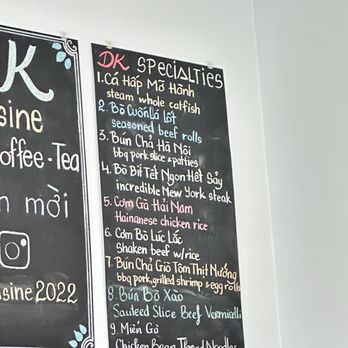 K
sine
offee · Tea
mời
sine 2022
DK SPECIALTIES
1. Cá Hấp Mỡ Hành
steam whole catfish
2. Bò Cuốn Lá Lốt
seasoned beef rolls
3. Bún Chả Hà Nội
bbq pork slice & patties
4. Bò Bít Tết Ngon Hết Sảy
incredible New York steak
5. Cơm Gà Hải Nam
Hainanese chicken rice
6. Cơm Bò Lúc Lắc
Shaken beef w/rice
7. Bún Chả Giò Tôm Thịt Nướng
bbq pork, grilled shrimp & egg rolls
8. Bún Bò Xào
Sauteed Slice Beef Vermicelli
9. Miến Gà
Chicken Bean Thread Noodles